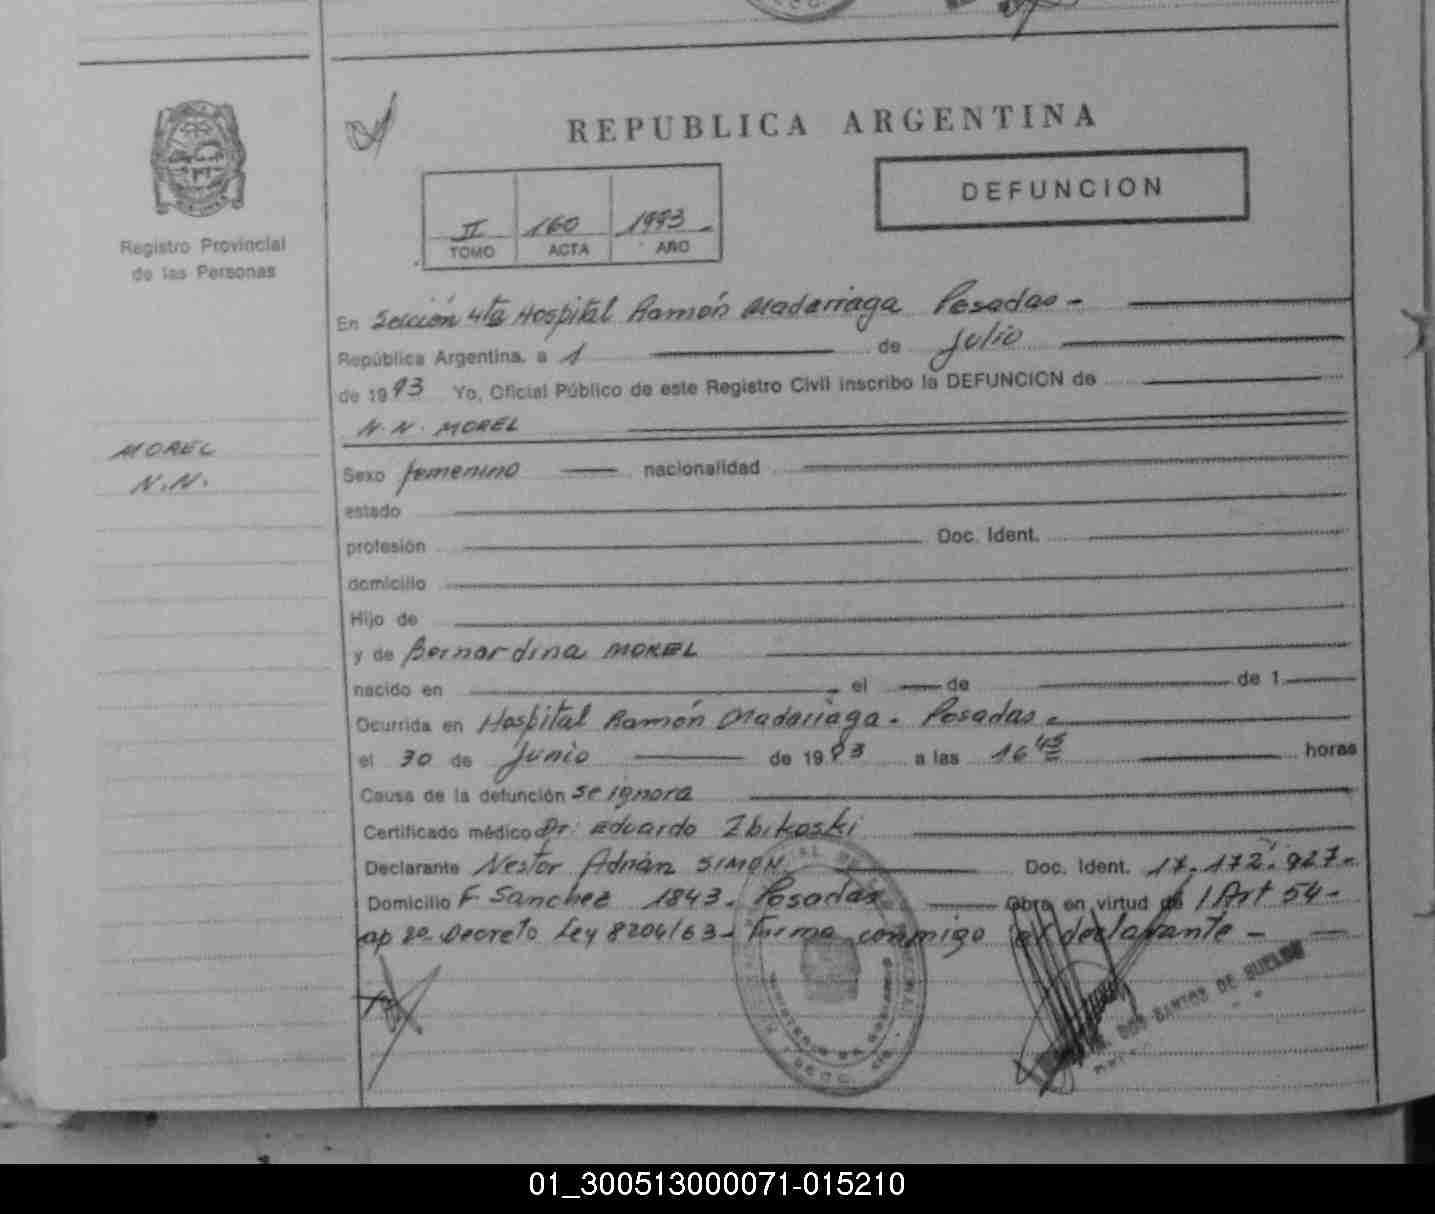 REPUBLICA ARGENTINA
DEFUNCION
II 160 1993
TOMO ACTA AÑO
Registro Provincial
de las Personas
En Sección 4ta Hospital Ramón Madariaga Posadas -
República Argentina, a 1 de Julio
de 1993 Yo, Oficial Público de este Registro Civil inscribo la DEFUNCION de
N. N. MOREL
MOREL
N.N.
Sexo femenino nacionalidad
estado
profesión Doc. Ident.
domicilio
Hijo de
y de Bernardina MOREL
nacido en el de de 1
Ocurrida en Hospital Ramón Madariaga - Posadas -
el 30 de Junio de 1993 a las 16 45 horas
Causa de la defunción se ignora
Certificado médico Dr. Eduardo Zbikoski
Declarante Nestor Adrián SIMON Doc. Ident. 17.172.927-
Domicilio F. Sanchez 1843 - Posadas Obra en virtud de l Art 54-
ap 2º Decreto Ley 8204/63 - Firma conmigo el declarante -
DOS SANTOS DE
01_300513000071-015210